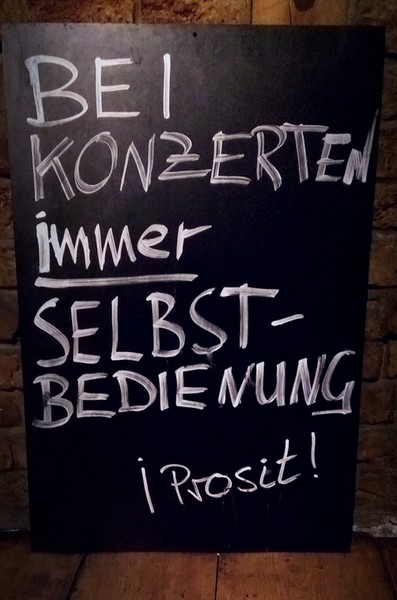 BEI
KONZERTEN
immer
SELBST-
BEDIENUNG
¡Prosit!